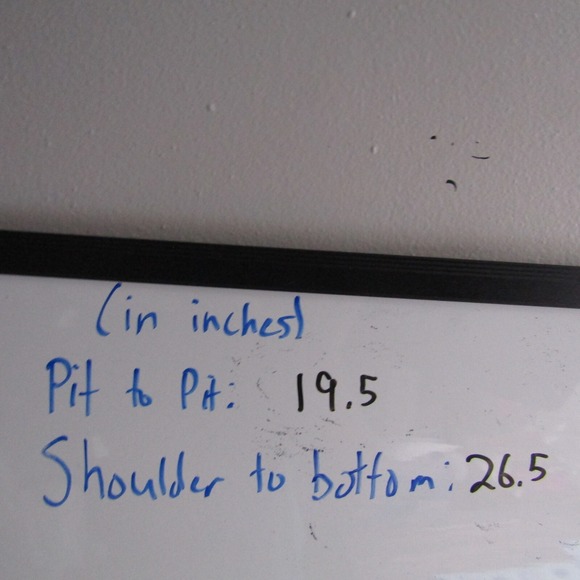 (in inches)
Pit to Pit: 19.5
Shoulder to bottom: 26.5